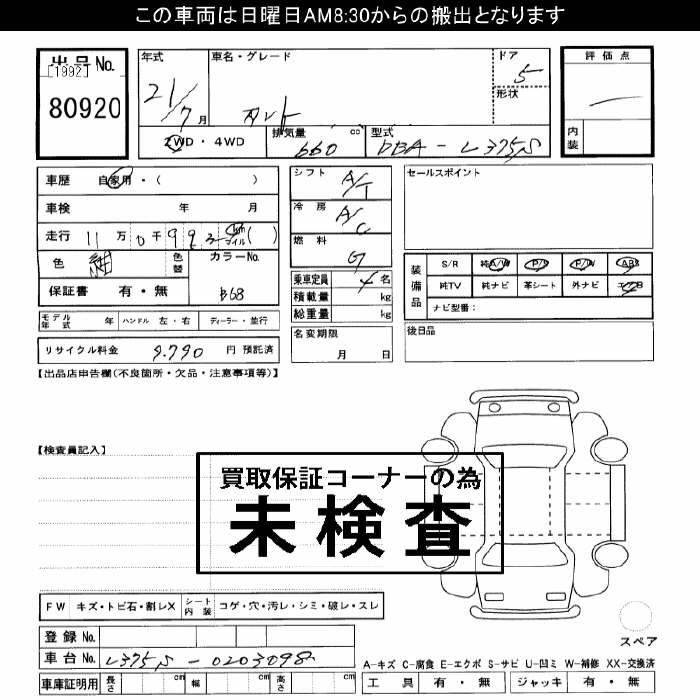 この車両は日曜日AM8:30からの搬出となります
出品No.
[1992]
80920
年式
21/7月
車名・グレード
タント
ドア
5
形状
評価点
内装
2WD・4WD
排気量 660 cc
型式 DBA-L375S
車歴 自家用・( )
車検 年 月
走行 11万0千993 km マイル( )
色 紺
色替
カラーNo. B68
保証書 有・無
シフト A/T
冷房 A/C
燃料 G
乗車定員 4名
積載量 kg
総重量 kg
セールスポイント
装備品
S/R 純A/W P/S P/W ABS
純TV 純ナビ 革シート 外ナビ エアB
ナビ型番:
モデル年式 年 ハンドル 左・右 ディーラー・並行
名変期限 月 日
後日品
リサイクル料金 9.790 円 預託済
【出品店申告欄(不良箇所・欠品・注意事項等)】
【検査員記入】
買取保証コーナーの為
未検査
FW キズ・トビ石・割レX シート内装 コゲ・穴・汚レ・シミ・破レ・スレ
スペア
登録No.
車台No. L375S-0203098
A-キズ C-腐食 E-エクボ S-サビ U-凹ミ W-補修 XX-交換済
車庫証明用 長さ cm 幅 cm 高さ cm
工具 有・無 ジャッキ 有・無